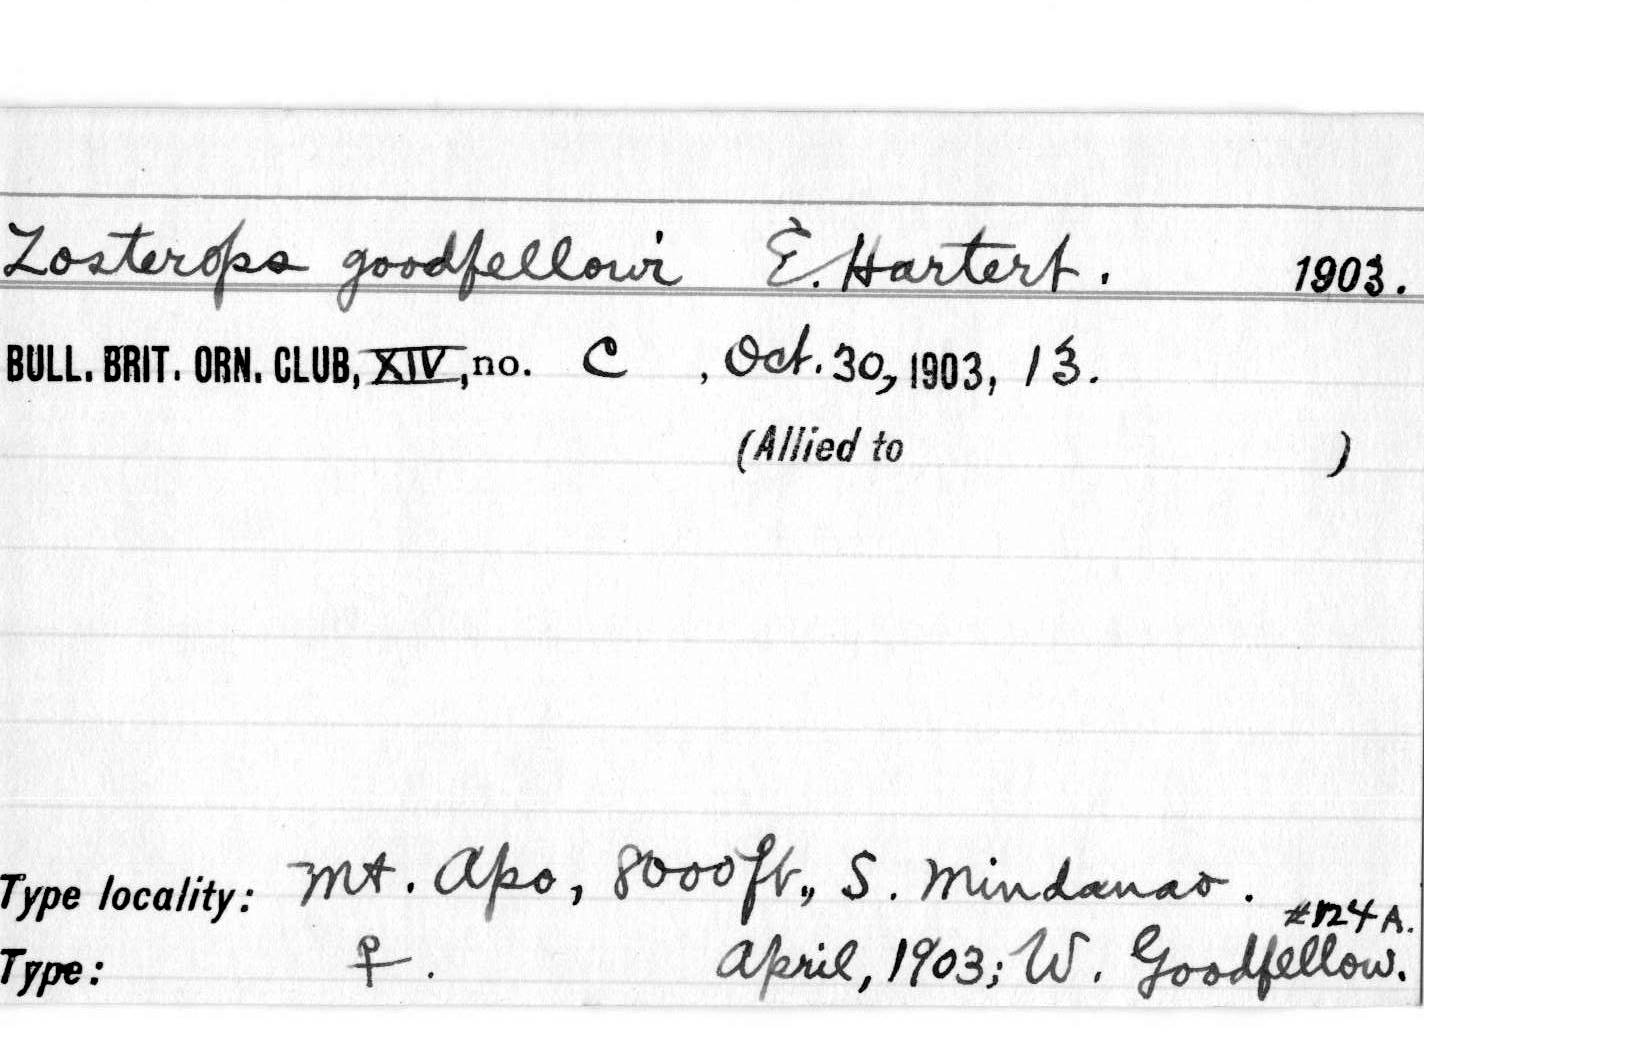 Zosterops goodfellowi E. Hartert. 1903.
BULL. BRIT. ORN. CLUB, XIV, no. C , Oct. 30, 1903, 13.
(Allied to )
Type locality: Mt. Apo, 8000 ft., S. Mindanao.
#124 A.
Type: ♀. April, 1903; W. Goodfellow.